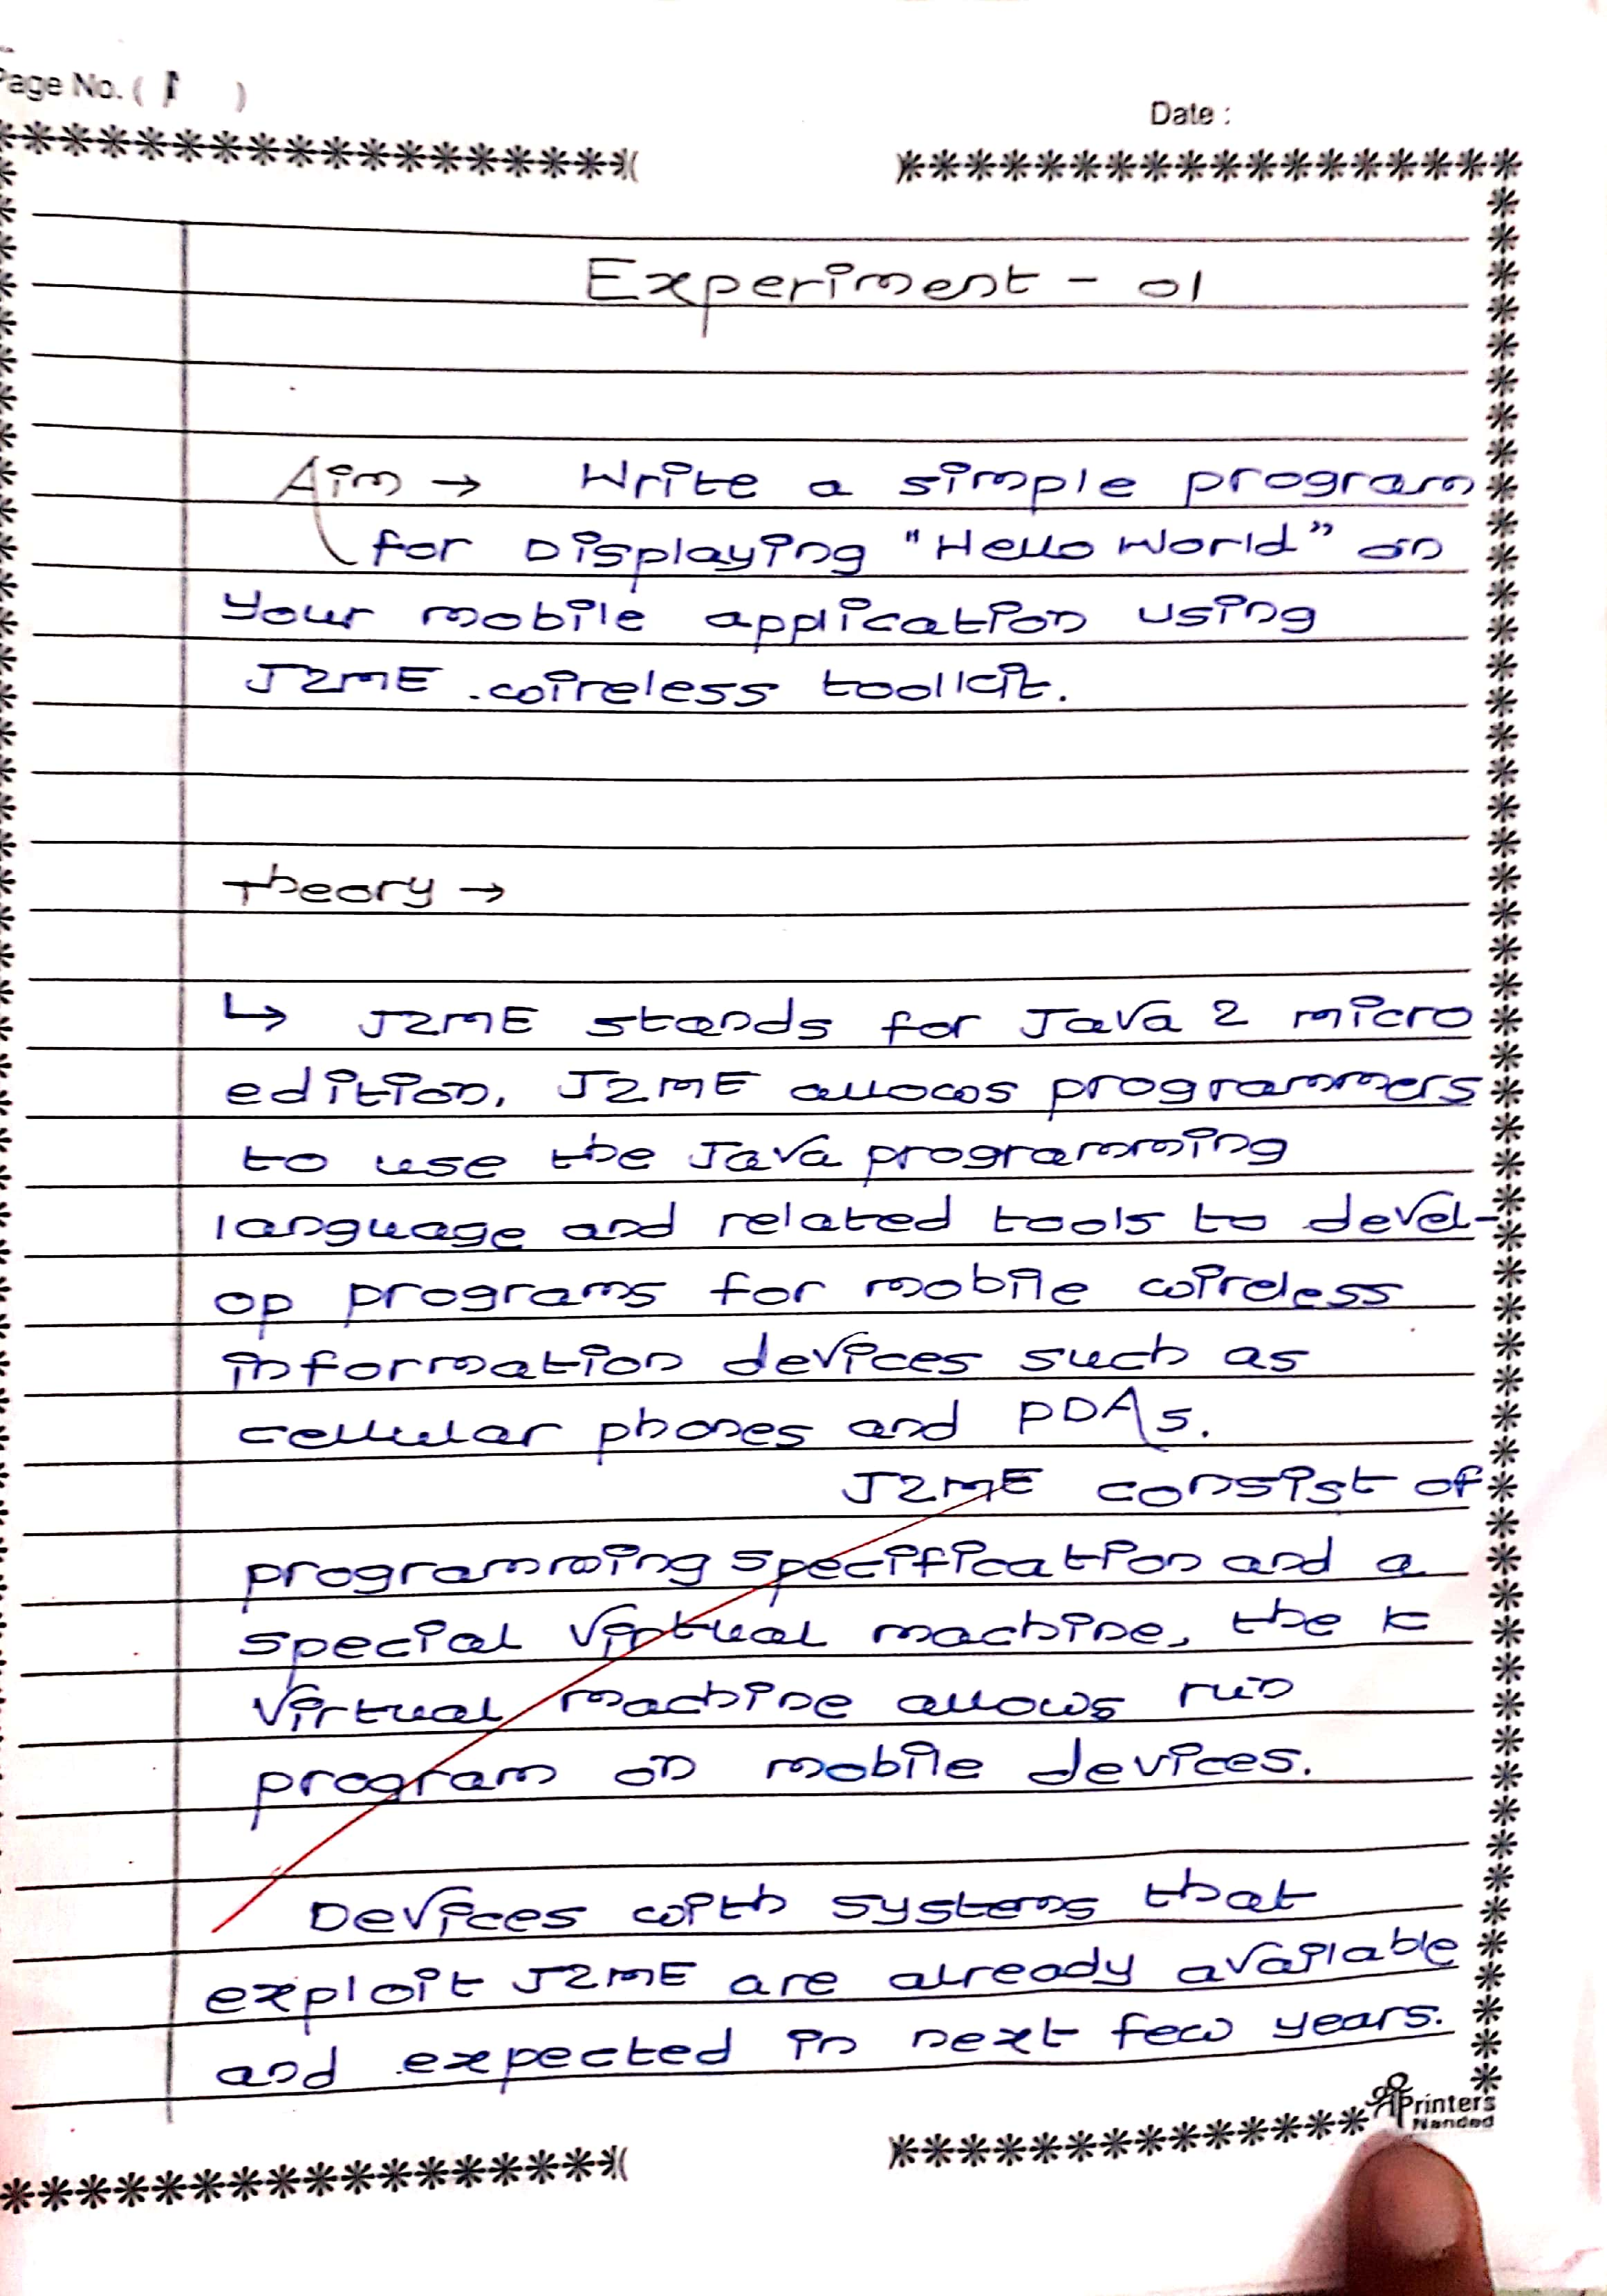 Page No. ( 1 )
Date :
Experiment - 01
Aim → Write a simple program
for Displaying "Hello World" on
your mobile application using
J2ME wireless toolkit.
Theory →
↳ J2ME stands for Java 2 micro
edition. J2ME allows programmers
to use the Java programming
language and related tools to devel-
op programs for mobile wireless
information devices such as
cellular phones and PDA's.
J2ME consist of
programming specification and a
special virtual machine, the K
virtual machine allows run
program on mobile devices.
Devices with systems that
exploit J2ME are already available
and expected in next few years.
Printers
Nanded